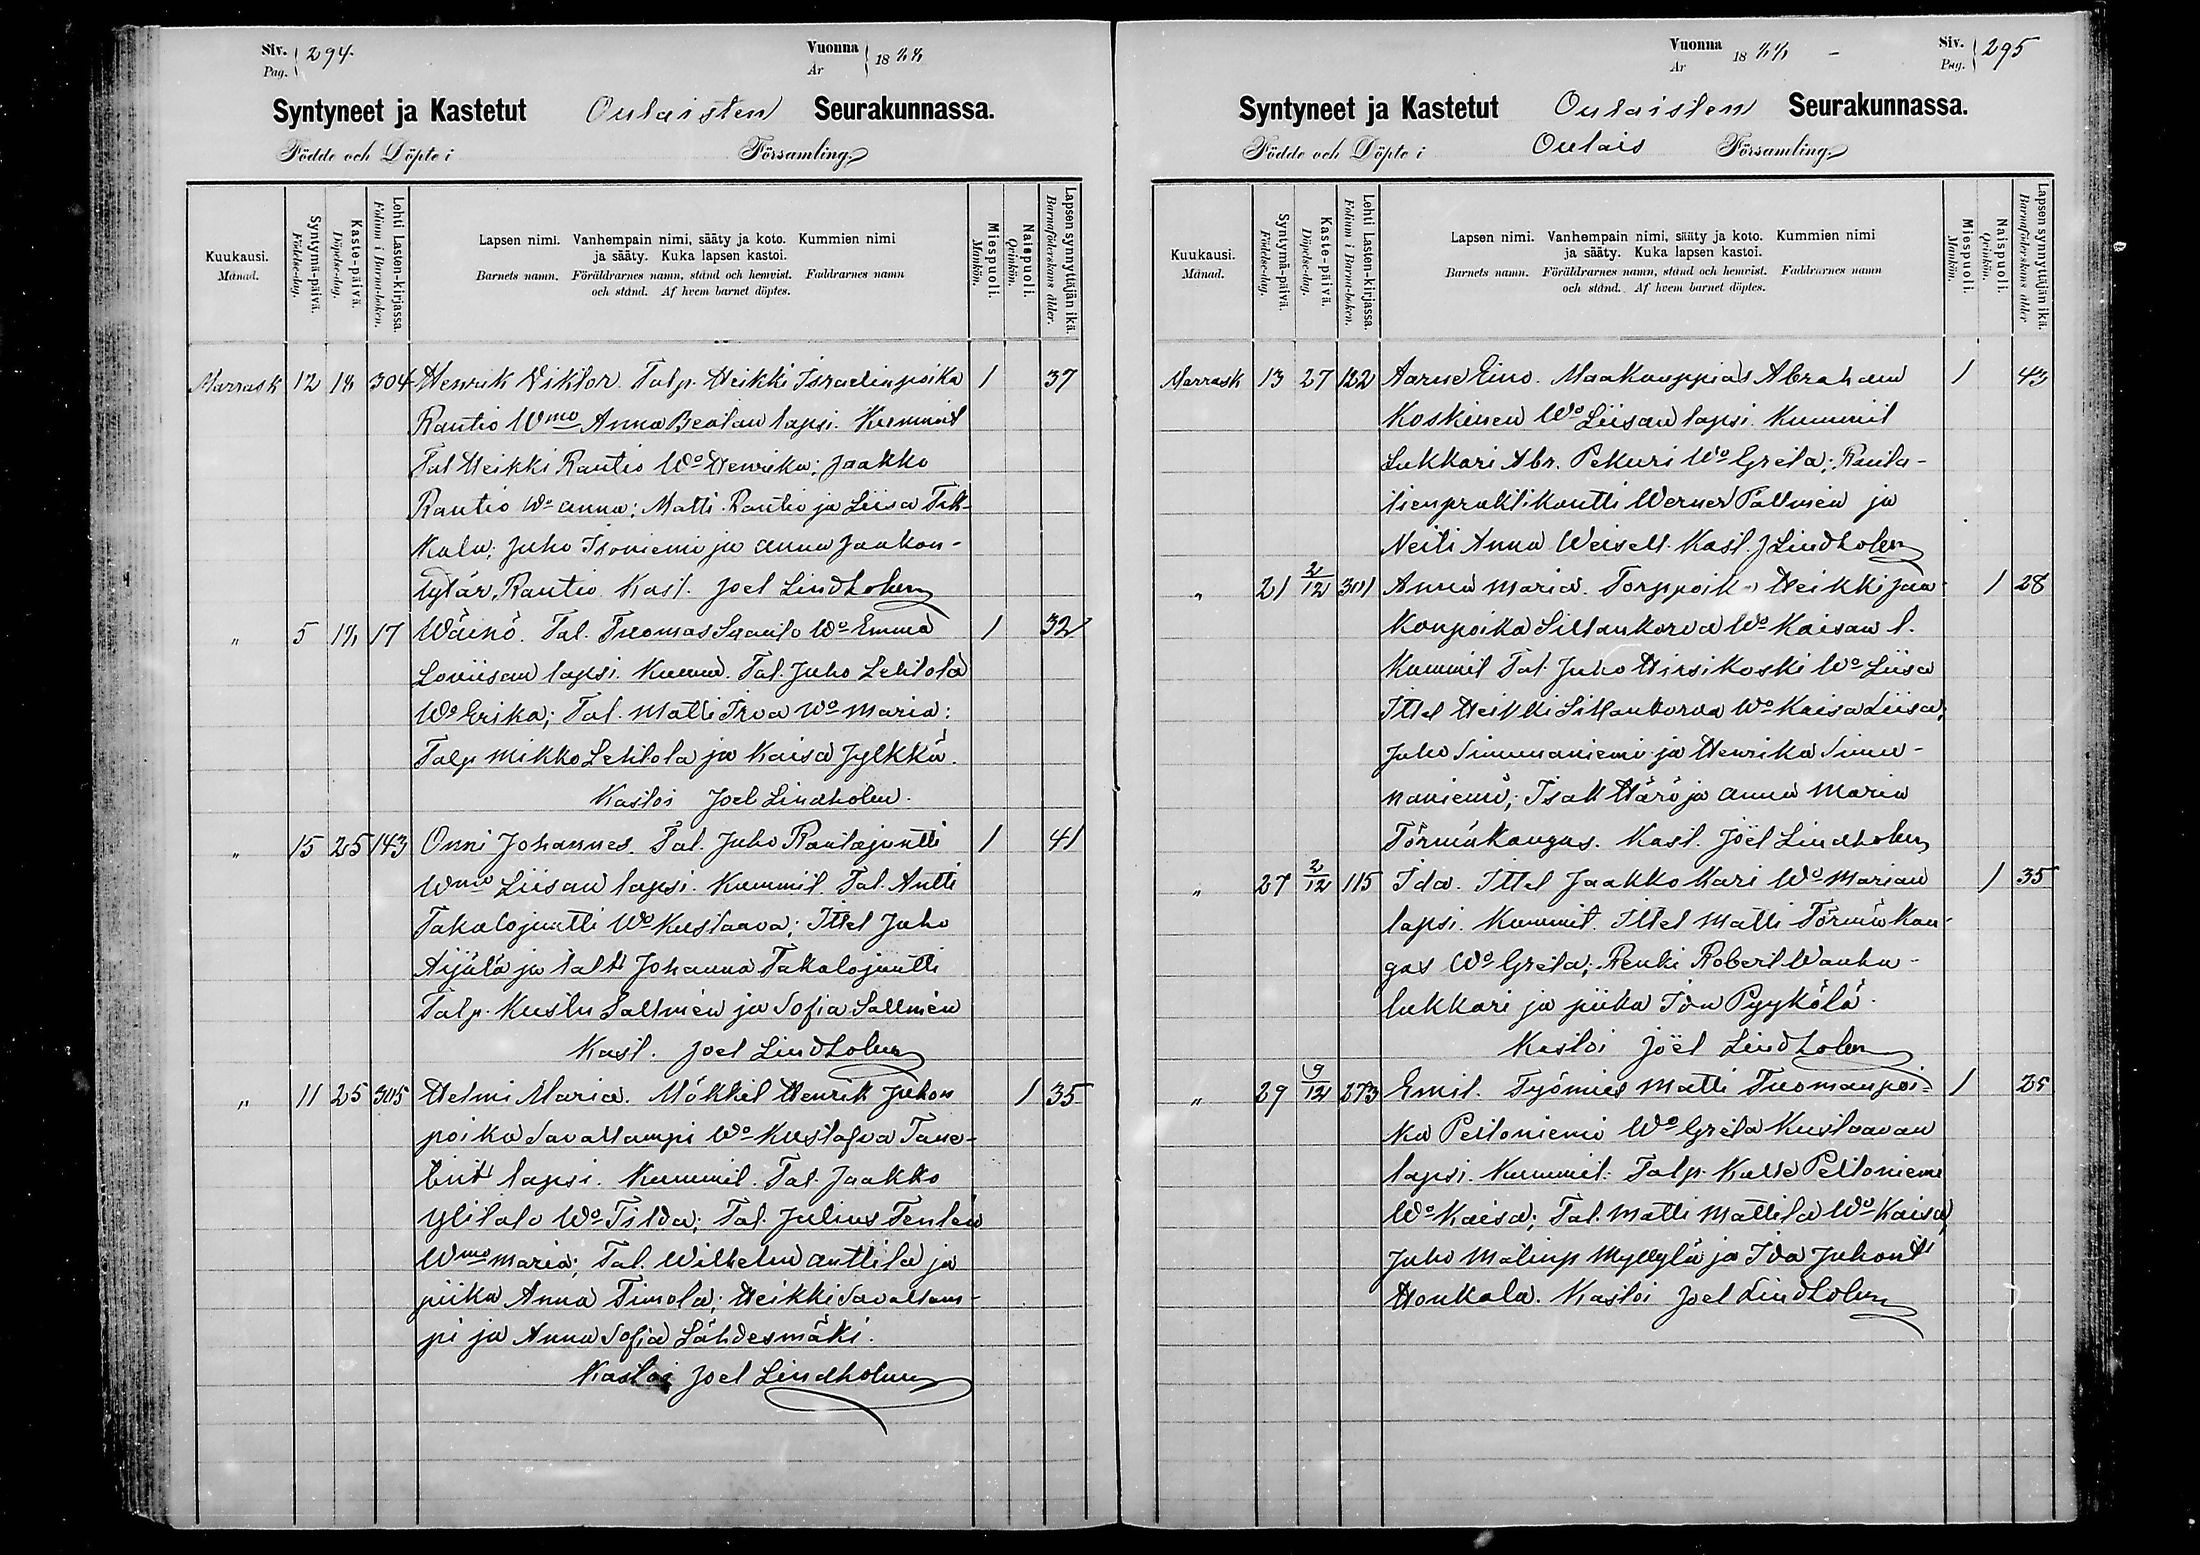 Siv. 294.
Pag.
Vuonna 1888
År
Syntyneet ja Kastetut Oulaisten Seurakunnassa.
Födde och Döpte i Församling.
Kuukausi. Månad.
Syntymä-päivä. Födelse-dag.
Kaste-päivä. Döpelse-dag.
Lehti Lasten-kirjassa. Folium i Barna-boken.
Lapsen nimi. Vanhempain nimi, sääty ja koto. Kummien nimi
ja sääty. Kuka lapsen kastoi.
Barnets namn. Föräldrarnes namn, stånd och hemvist. Faddrarnes namn
och stånd. Af hvem barnet döptes.
Miespuoli. Mankön.
Naispuoli. Qvinkön.
Lapsen synnyttäjän ikä. Barnaföderskans ålder.
Marrask 12 18 304 Henrik Viktor. Talp. Heikki Israelinpoika 1 37
Rautio Wmo Anna Beatan lapsi. Kummit
Tal Heikki Rautio Wo Henrika; Jaakko
Rautio Wo Anna; Matti Rautio ja Liisa Tik-
kala; Juho Isoniemi ja Anna Jaakon-
tytär Rautio Kast. Joel Lindholm
" 5 18 17 Wäinö. Tal. Tuomas Wo Emma 1 32
Loviisan lapsi. Kumm. Tal. Juho Lehtola
Wo Erika; Tal. Matti Irva Wo Maria;
Talp Mikko Lehtola ja Kaisa Jylkkä.
Kastoi Joel Lindholm.
" 15 25 143 Onni Johannes. Tal. Juho Rautajuntti 1 41
Wmo Liisan lapsi. Kummit. Tal. Antti
Takalojuntti Wo Kustaava; Ittel Juho
Äijälä ja talt Johanna Takalojuntti
Talp. Kustu Sallmén ja Sofia Sallmén
Kast. Joel Lindholm
" 11 25 305 Helmi Maria. Mökkil Henrik Juhon 1 35
poika Savallampi Wo Kustafva Tane-
lint lapsi. Kummit. Tal. Jaakko
Ylitalo Wo Tilda; Tal. Julius Tenlén
Wmo Maria; Tal. Wilhelm Anttila ja
piika Anna Timola; Heikki Savallam-
pi ja Anna Sofia Lähdesmäki.
Kastoi Joel Lindholm
Vuonna 1888 -
År
Siv. 295
Pag.
Syntyneet ja Kastetut Oulaisten Seurakunnassa.
Födde och Döpte i Oulais Församling.
Kuukausi. Månad.
Syntymä-päivä. Födelse-dag.
Kaste-päivä. Döpelse-dag.
Lehti Lasten-kirjassa. Folium i Barna-boken.
Lapsen nimi. Vanhempain nimi, sääty ja koto. Kummien nimi
ja sääty. Kuka lapsen kastoi.
Barnets namn. Föräldrarnes namn, stånd och hemvist. Faddrarnes namn
och stånd. Af hvem barnet döptes.
Miespuoli. Mankön.
Naispuoli. Qvinkön.
Lapsen synnyttäjän ikä. Barnaföderskans ålder
Marrask 13 27 122 Aarne Eino. Maakauppias Abraham 1 43
Koskinen Wo Liisan lapsi. Kummit
Lukkari Abr. Pekuri Wo Greta; Rauta-
tienpraktikantti Werner Pållmén ja
Neiti Anna Weisell. Kast. J Lindholm
" 21 2/12 301 Anna Maria. Torppoik Heikki Jaa- 1 28
konpoika Sillankorva Wo Kaisan l.
Kummit Tal. Juho Hirsikoski Wo Liisa
Ittel Heikki Sillankorva Wo Kaisa Liisa;
Juho Simunaniemi ja Henrika Simu-
naniemi; Isak Härö ja Anna Maria
Törmäkangas. Kast. Joël Lindholm
" 27 2/12 115 Ida. Ittel Jaakko Kari Wo Marian 1 35
lapsi. Kummit. Ittel Matti Törmäkan-
gas Wo Greta; Renki Robert Wanha-
lukkari ja piika Ida Pyykölä.
Kastoi Joël Lindholm
" 29 9/12 273 Emil. Työmies Matti Tuomanpoi- 1 25
ka Peltoniemi Wo Greta Kustaavan
lapsi. Kummit. Talp. Kalle Peltoniemi
Wo Kaisa; Tal. Matti Mattila Wo Kaisa
Juho Matinp Myllylä ja Ida Juhont
Honkala. Kastoi Joel Lindholm